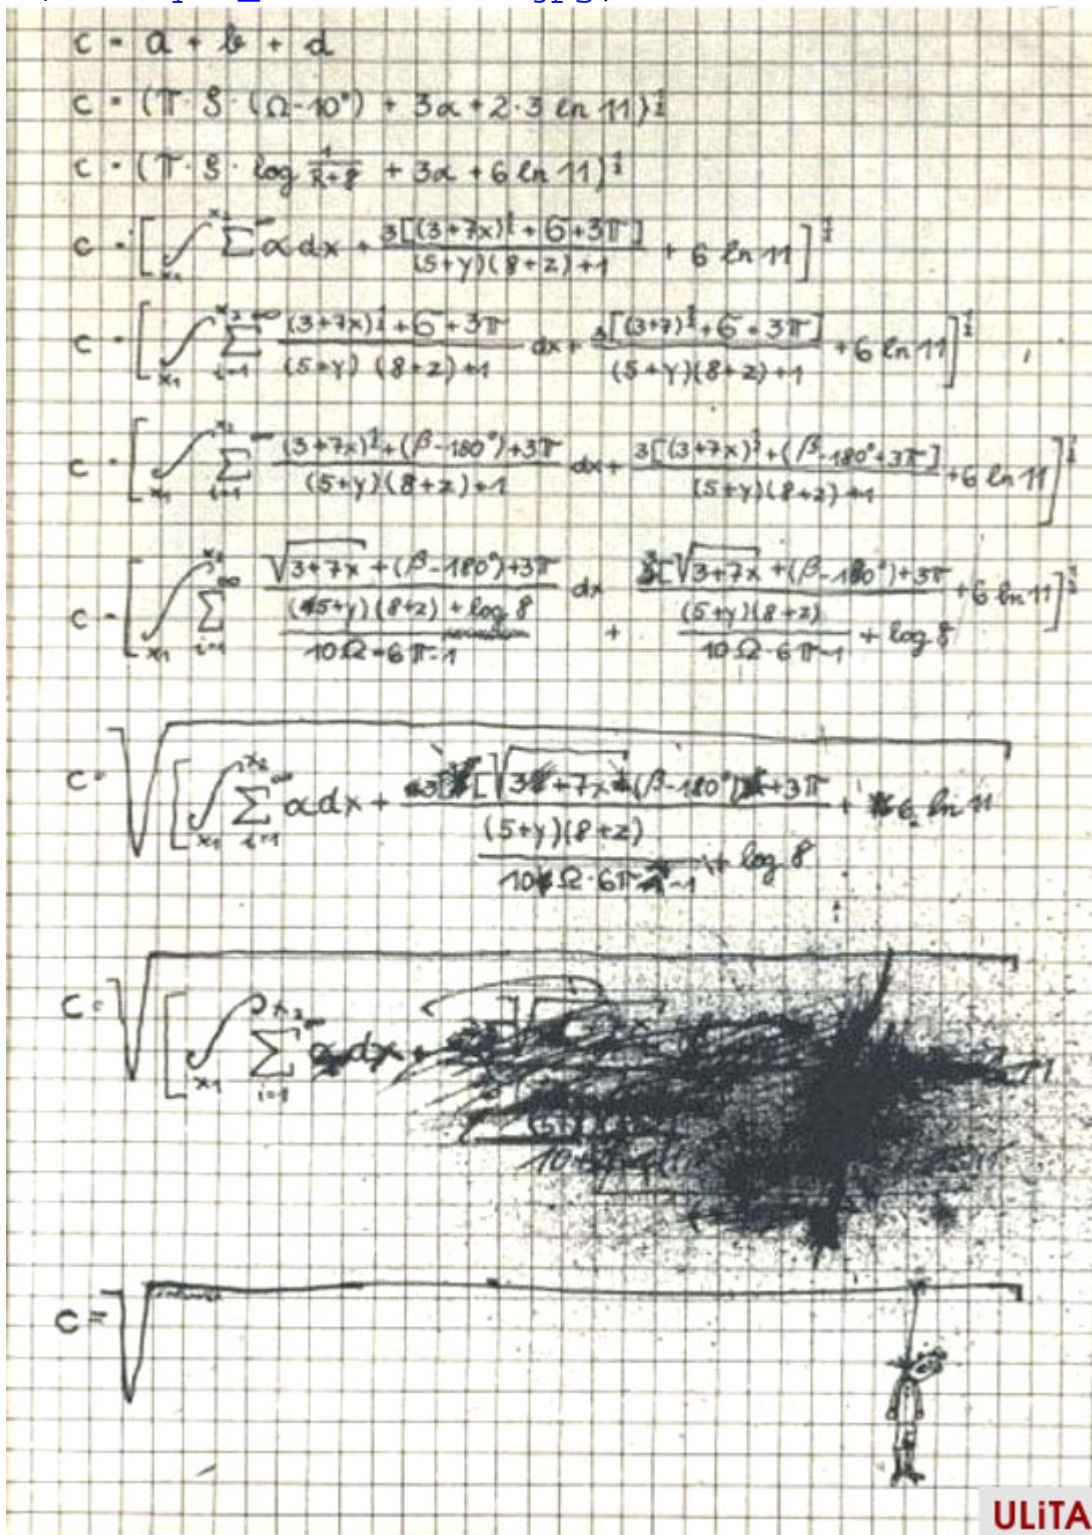 c = a + b + d
c = (π · 8 · (Ω-10°) + 3α + 2·3 ln 11)^½
c = (π · 8 · log + 3α + 6 ln 11)
c = [∫x₁ x₂ Σ ∞ α dx + 3[(3+7x)^½ + 6 + 3π] / (5+y)(8+z)+1 + 6 ln 11]^½
c = [∫x₁ x₂ Σ i=1 ∞ (3+7x)^½ + 6 + 3π / (5+y) (8+z) +1 dx + 3[(3+7)^½ + 6 + 3π] / (5+y)(8+z)+1 + 6 ln 11]^½
c = [∫x₁ x₂ Σ i=1 ∞ (3+7x)^½ + (β-180°)+3π / (5+y)(8+z)+1 dx + 3[(3+7x)^½ + (β-180°+3π] / (5+y)(8+z)+1 + 6 ln 11]^½
c = [∫x₁ x₂ Σ i=1 ∞ √3+7x + (β-180°)+3π / (5+y)(8+z) + log 8 / 10Ω-6π-1 dx + 3[√3+7x + (β-180°)+3π / (5+y)(8+z) / 10Ω·6π-1 + log 8 + 6 ln 11]^½
c = √[∫x₁ x₂ Σ i=1 ∞ α dx + 3[√3+7x (β-180°) +3π / (5+y)(8+z) / 10Ω·6π-1 + log 8 + 6 ln 11
c = √[∫x₁ x₂ Σ i=1 ∞ α dx + 11
c = √
ULiTA